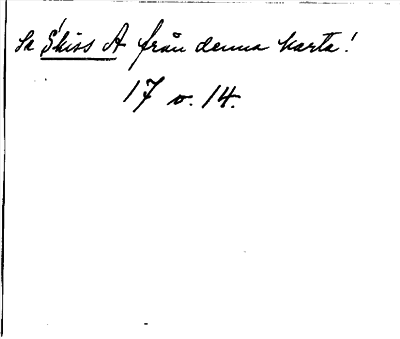 Sa Skiss A från denna karta!
17 v. 14.